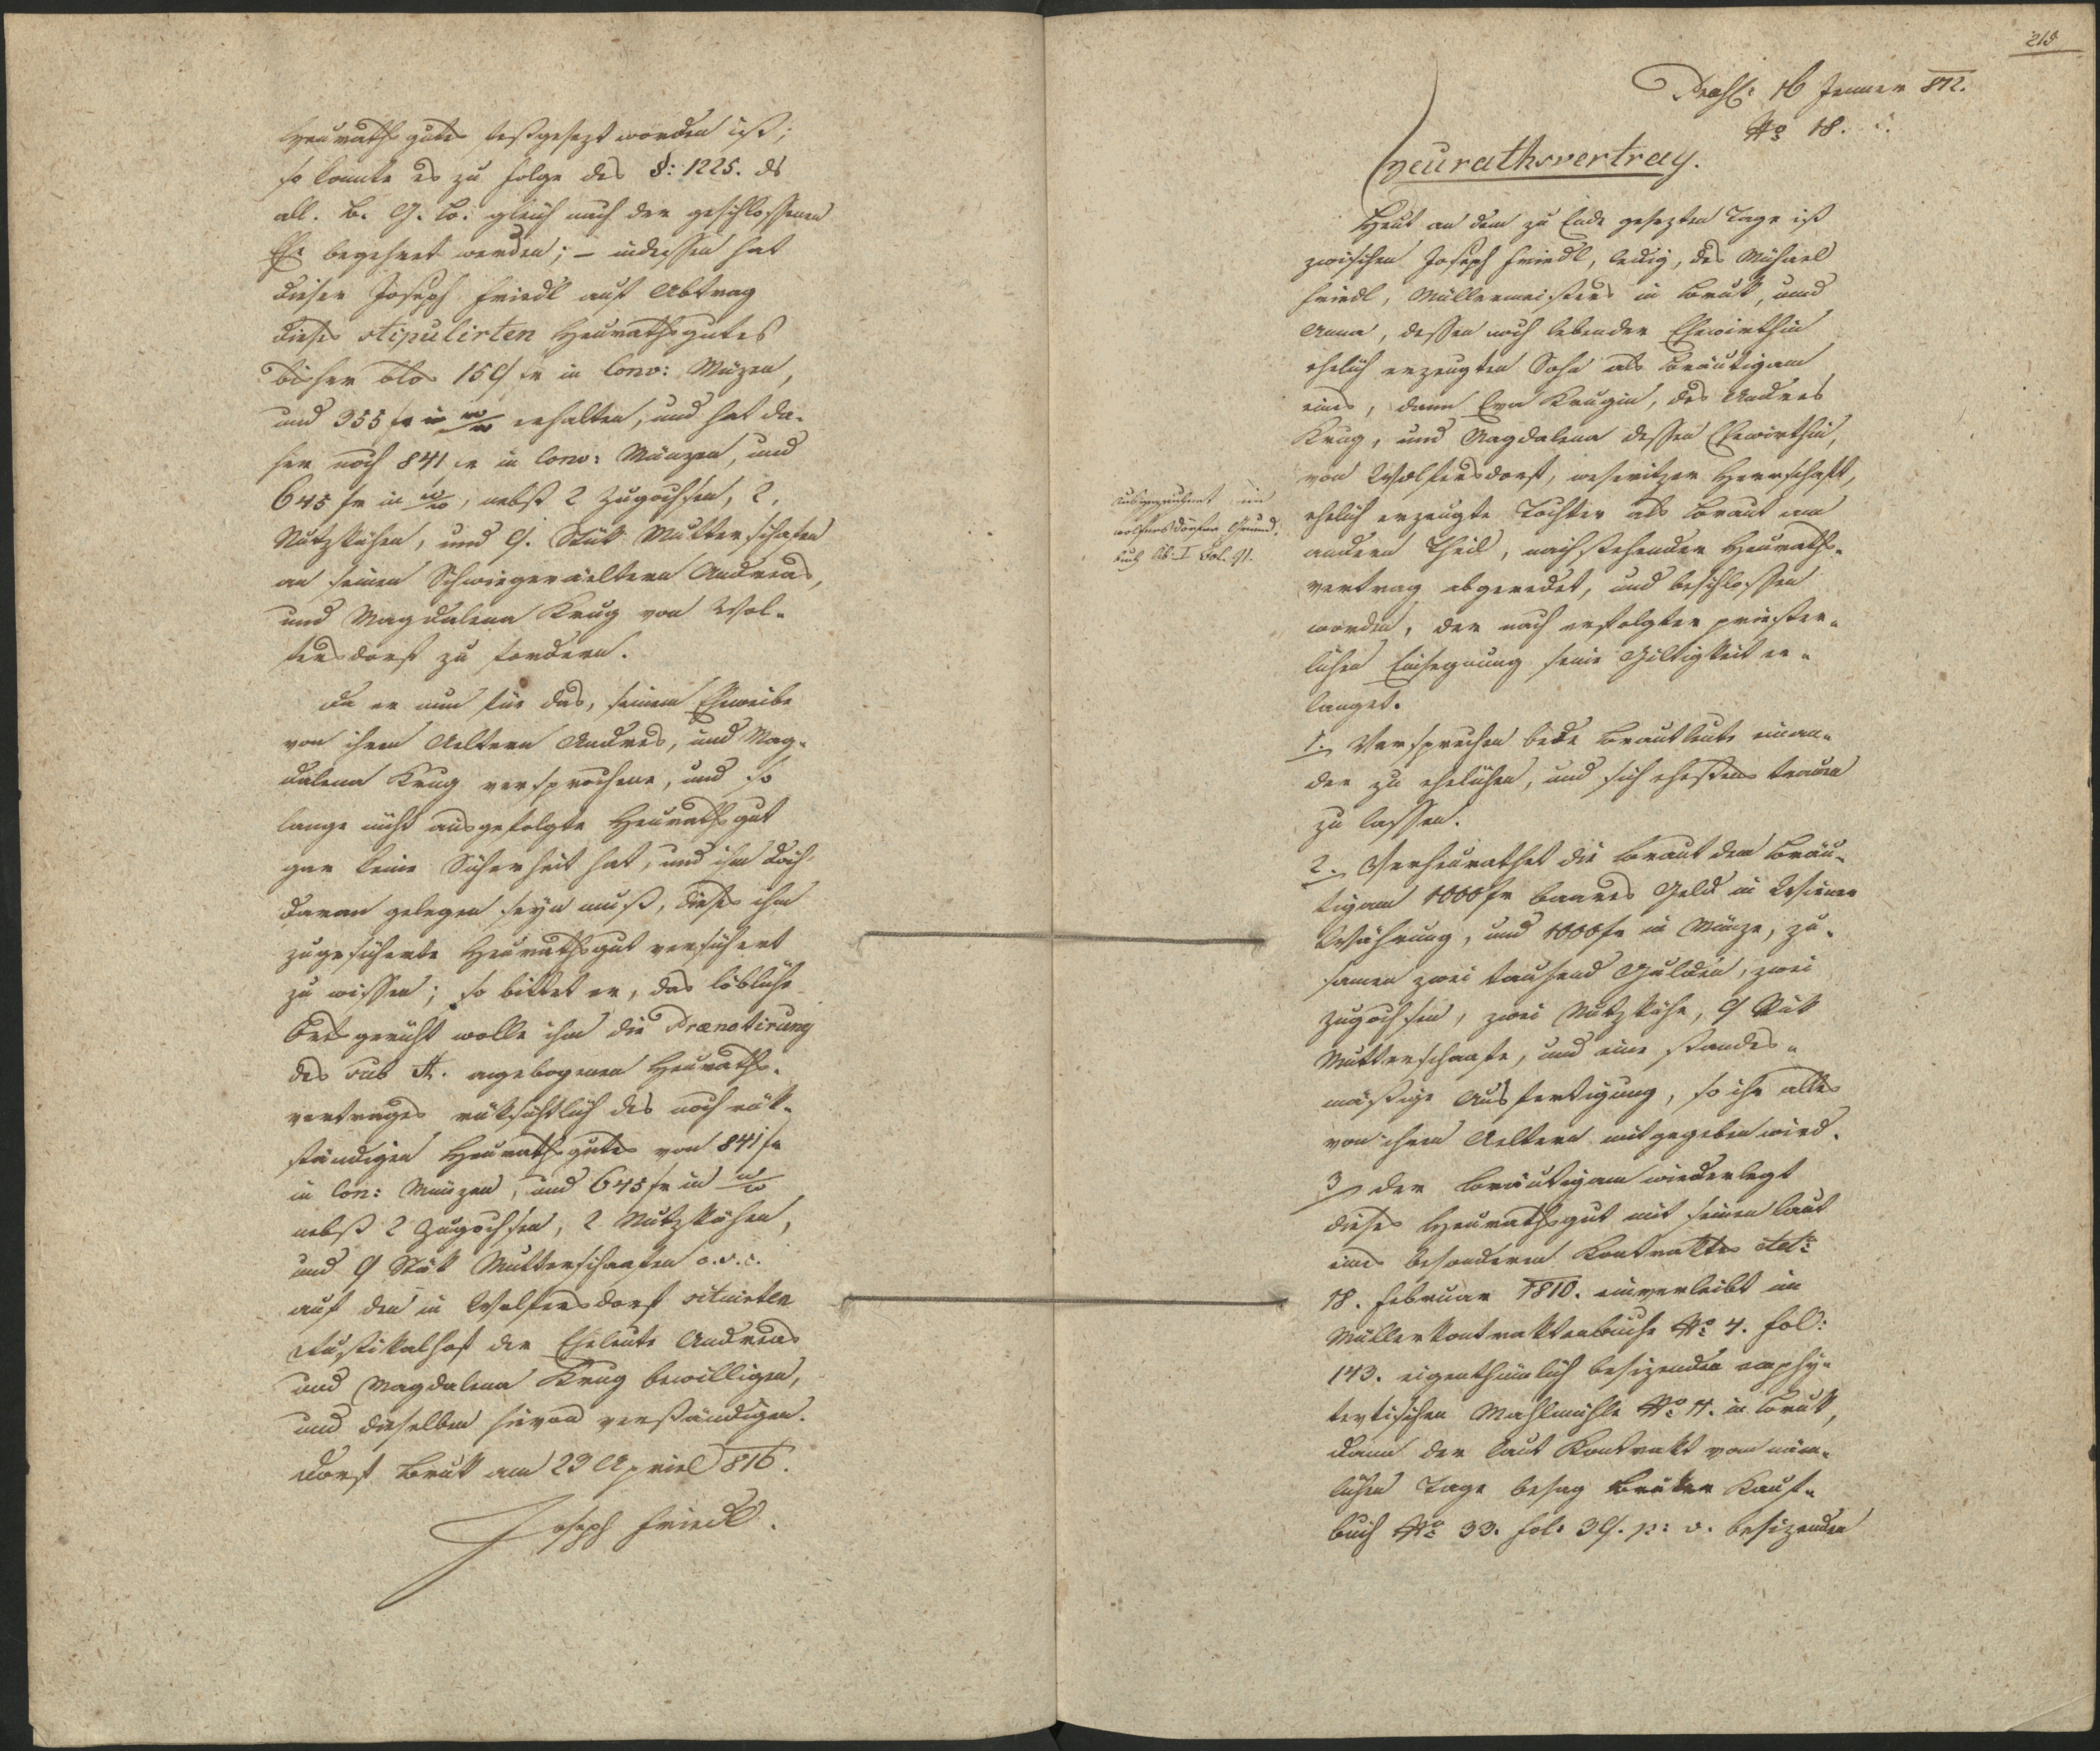 Heurathsgutes festgesezt worden ist;
so konnte es zu folge des §: 1225. des
all. b. G. B. gleich nach der geschlossenen
Ehe begehret werden; – indessen hat
dieser Joseph Friedl auf Abtrag
dieses stipulirten Heurathsgutes
bisher blos 159 fr in Conv: Münzen,
und 355 fr in W/W erhalten, und hat da-
her noch 841 fr in Conv: Münzen, und
645 fr in W/W, nebst 2 Zugochsen, 2.
Nutzkühen, und 9. Stük Mutterschafen
an seinen Schwiegerältern Andreas,
und Magdalena Krug von Wol-
fersdorf zu fordern.
Da er nun für das, seinem Eheweibe
von ihren Aeltern Andreas, und Mag-
dalena Krug versprochene, und so
lange nicht ausgefolgte Heurathsgut
gar keine Sicherheit hat, und ihm doch
daran gelegen seyn muß, dieses ihm
zugesicherte Heurathsgut versichert
zu wissen; so bittet er, das löbliche
Ortsgericht wolle ihm die Prænotirung
des sub A. angebogenen Heuraths-
vertrages rüksichtlich des noch rük-
ständigen Heurathsgutes von 841 fr
in Con: Münzen, und 645 fr in W/W
nebst 2 Zugochsen, 2 Nutzkühen,
und 9 Stük Mutterschaafen c. s. c.
auf den in Wolfersdorf situirten
Rustikalhof der Eheleute Andreas
und Magdalena Krug bewilligen,
und dieselben hievon verständigen.
Dorf Bruk am 23 April 816.
Joseph Friedl.
215
Præs: 16 Jenner 812.
No 18.
Heurathsvertrag.
Heut an dem zu Ende gesezten Tage ist
zwischen Joseph Friedl, ledig, des Michael
Friedl, Müllermeisters in Bruk, und
Anna, dessen noch lebender Ehewirthin
ehelich erzeugten Sohn als Bräutigam
eines, dann Eva Krugin, des Andres
Krug, und Magdalena dessen Ehewirthin,
von Wolfersdorf, weseritzer Herrschaft,
ehelich erzeugte Tochter als Braut am
andern Theil, nachstehender Heuraths-
vertrag abgeredet, und beschlossen
worden, der nach erfolgter priester-
lichen Einsegnung seine Giltigkeit er-
langet.
wolfersdorfer Grund-
buch Lib: I Fol. 91.
1. Versprechen beede Brautleute einan-
der zu ehelichen, und sich ehestens trauen
zu lassen.
2. Verheurathet die Braut dem Bräu-
tigam 1000 fr baares Geld in Wiener
Währung, und 1000 fr in Münze, zu-
samen zwei tausend Gulden, zwei
Zugochsen, zwei Nutzkühe, 9 Stük
Mutterschaafe, und eine standes-
mäßige Ausfertigung, so ihr alles
von ihren Aeltern mitgegeben wird.
3 der Bräutigam wiederlegt
dieses Heurathsgut mit seiner laut
eines besonderen Kontraktes dto
18. Februar 1810. einverleibt im
Müllerkontraktenbuche No 4. fol:
143. eigenthümlich besizenden emphy-
tevtischen Mahlmühle No 11. in Bruk,
dann der laut Kontrakt vom näm-
lichen Tage besag Bruker Kauf-
buch No 33. fol: 39. p: v. besizenden